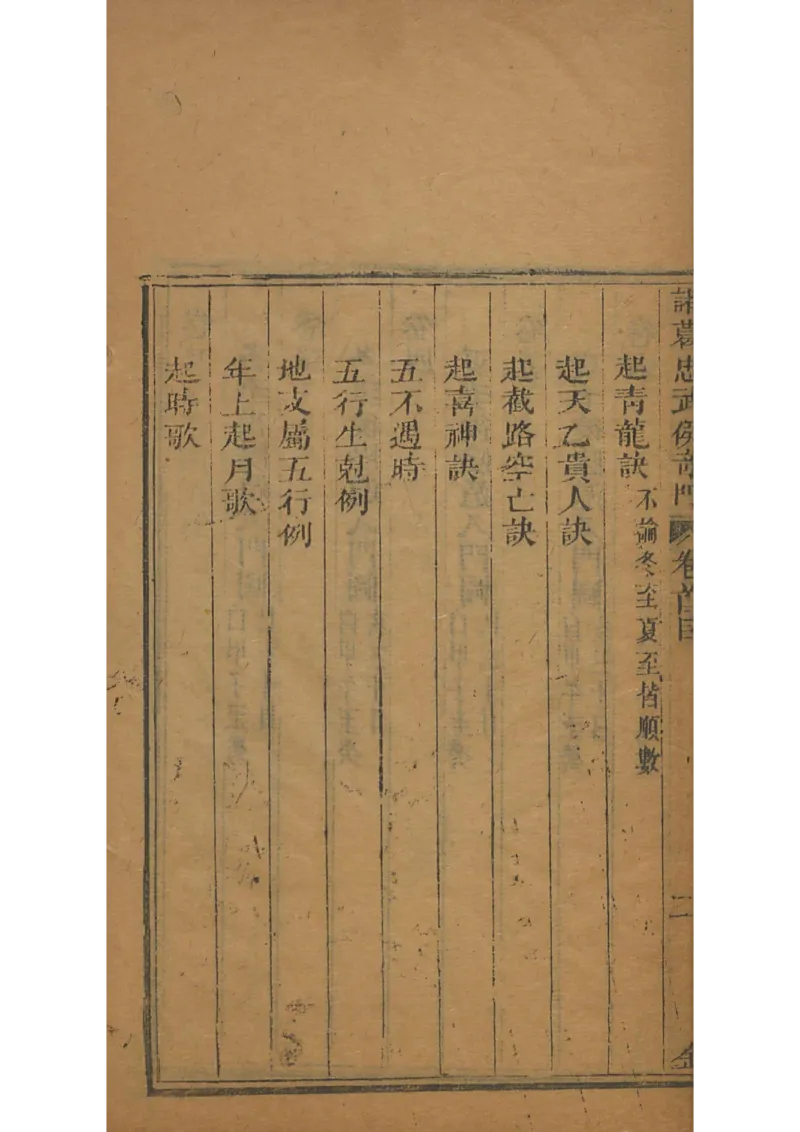 諸葛忠武侯奇門
卷首目
二
起青龍訣不論冬至夏至皆順數
起天乙貴人訣
起截路空亡訣
起喜神訣
五不遇時
五行生尅例
地支屬五行例
年上起月歌
起時歌